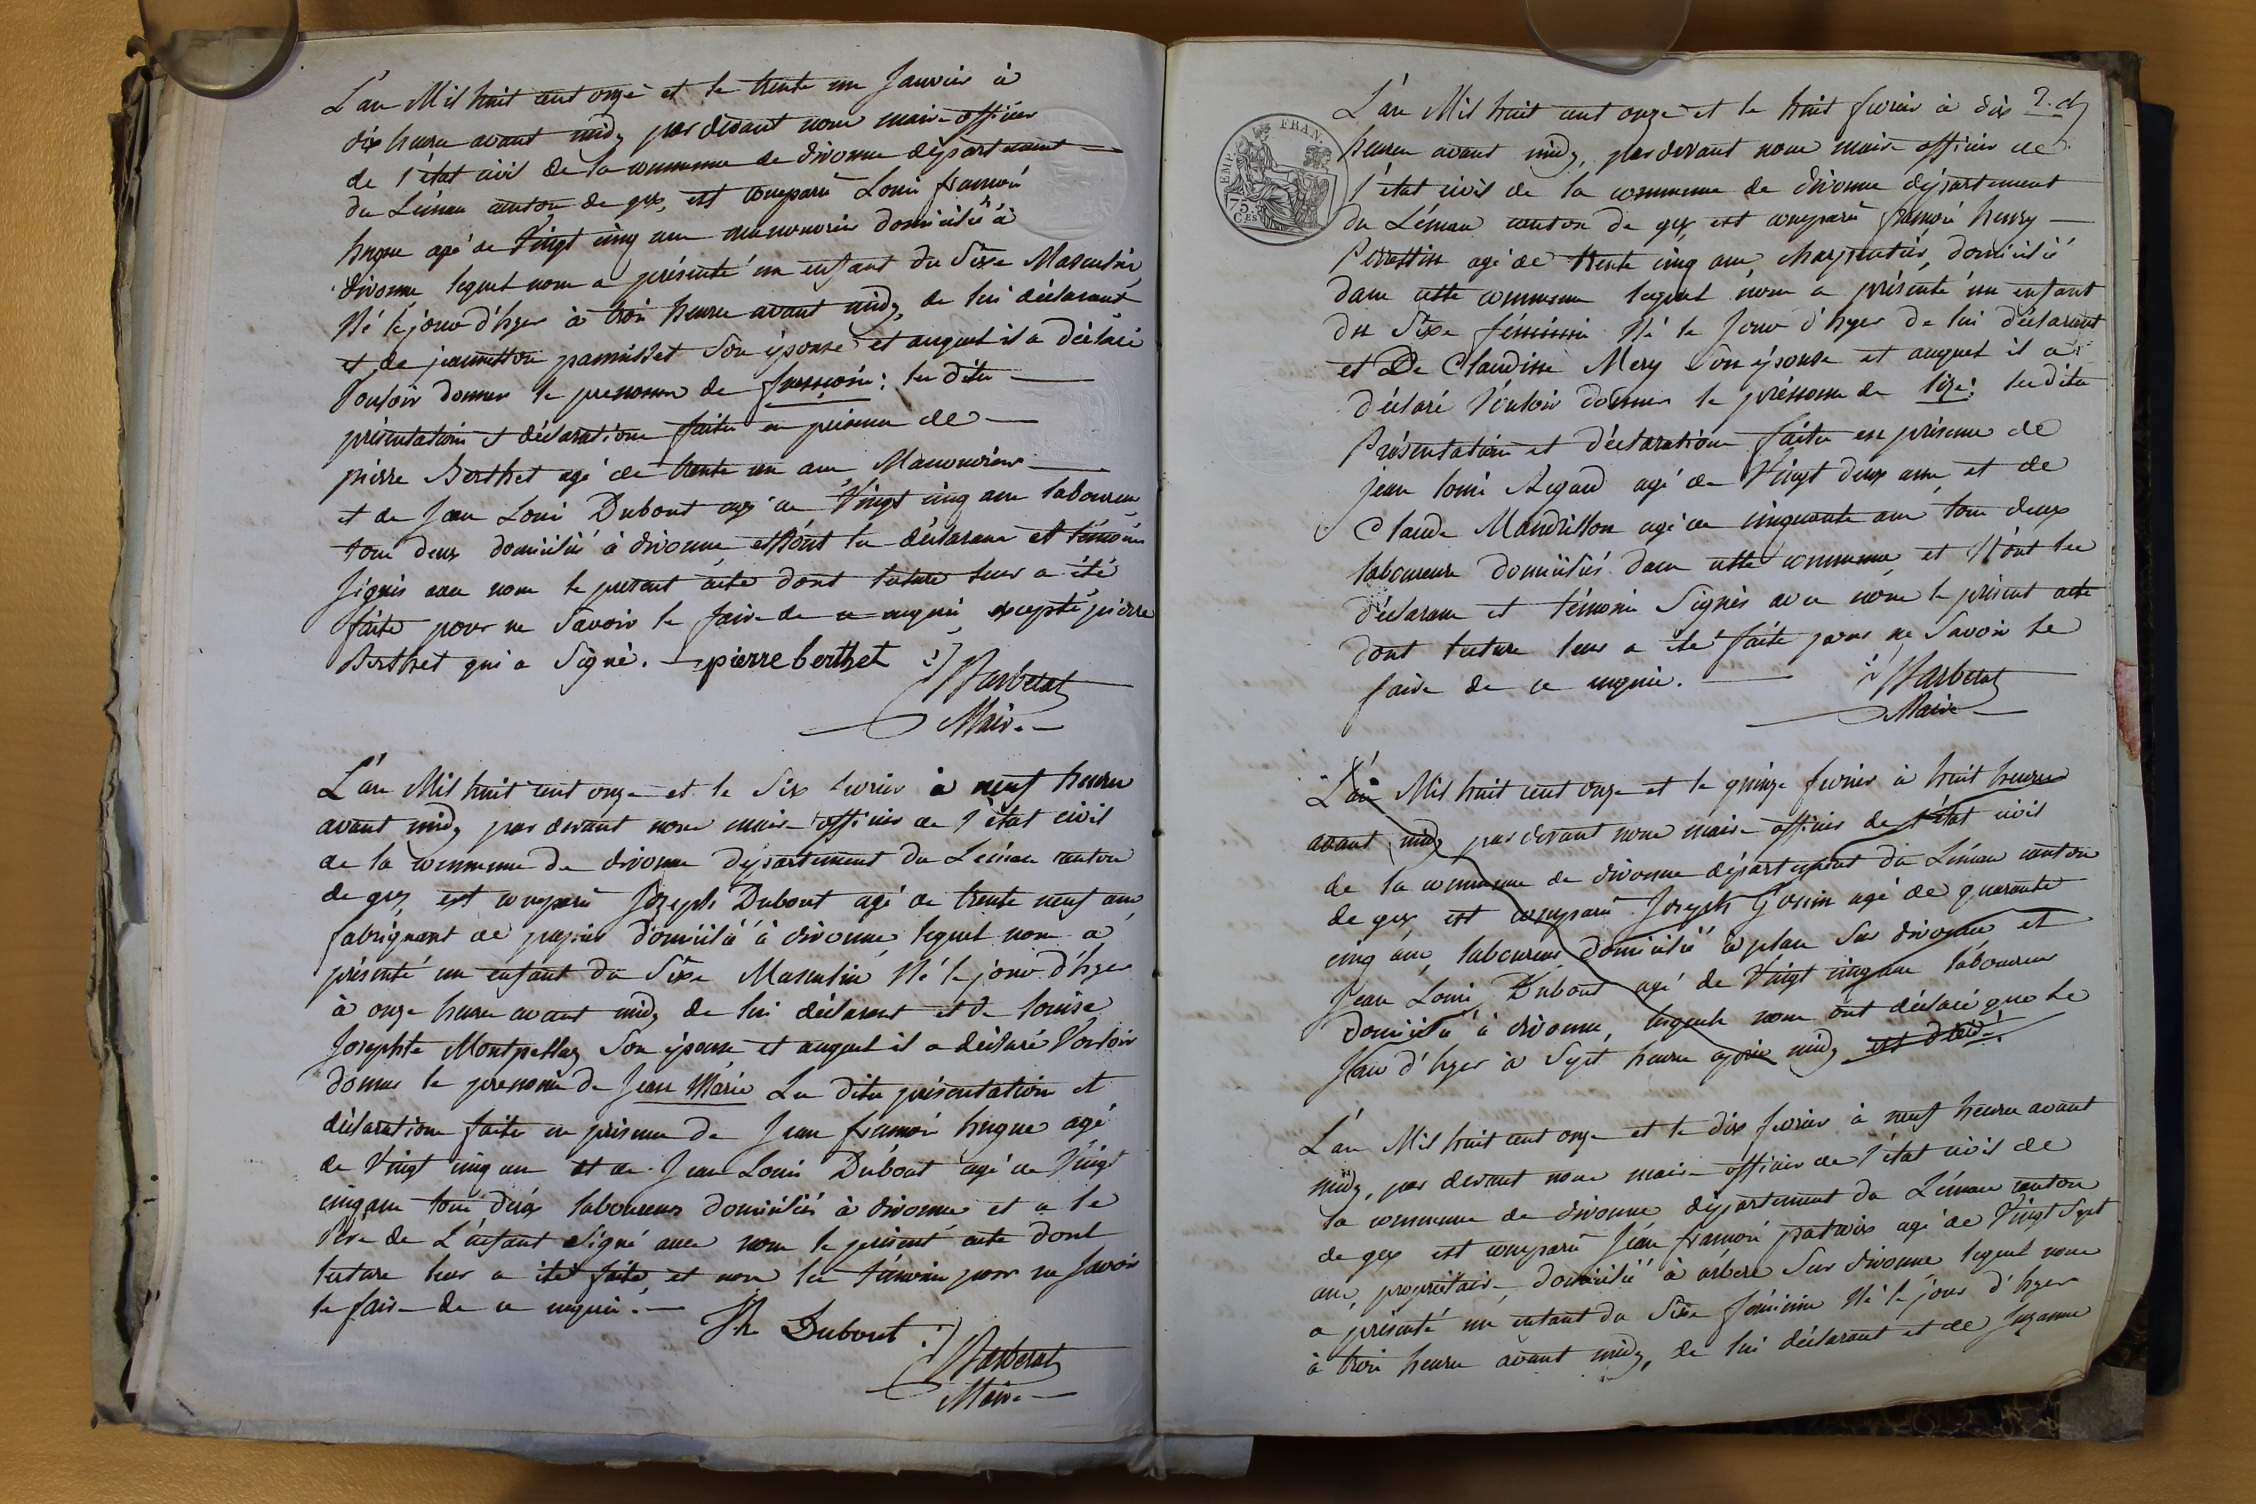 L'an Mil huit cent onze et le trente un Janvier à
dix heures avant midy par devant nous maire officier
de l'état civil de la commune de divonne département
du Léman canton de gex, est comparu Louis françois
hugue agé de Vingt cinq ans manouvrier domicilié à
divonne lequel nous a présenté un enfant du Sexe Masculin
Né le jour d'hyer à trois heures avant midy, de lui déclarant
et de jeannetton pannisset Son épouse et auquel il a déclaré
Vouloir donner le prenom de françois: les dites
présentation et déclaration faites en présence de
pierre Berthet agé de trente un ans Manouvrier
et de Jean Louis Dubout agé de Vingt cinq ans laboureur
tous deux domiciliés à divonne et N'ont les déclarans et témoins
Signés avec nous le present acte dont lecture leur a été
faite pour ne Savoir le faire de ce enquis excepté pierre
Berthet qui a Signé. pierre berthet
Barberat
Maire
L'an Mil huit cent onze et le Six fevrier à neuf heures
avant midy par devant nous maire officier de l'état civil
de la commune de divonne département du Léman canton
de gex est comparu Joseph Dubout agé de trente neuf ans
fabriquant de papier domicilié à divonne lequel nous a
présenté un enfant du Sexe Masculin Né le jour d'hyer
à onze heures avant midy de lui déclarant et de louise
Josephte Montpellaz Son épouse et auquel il a déclaré Vouloir
donner le prenom de Jean Marie Les dites présentation et
déclaration faites en présence de Jean françois hugue agé
de Vingt cinq ans et de Jean Louis Dubout agé de Vingt
cinq ans tous deux laboureurs domiciliés à divonne et a le
Père de L'enfant Signé avec nous le présent acte dont
lecture leur a été faite et non les témoins pour ne Savoir
le faire de ce enquis.
Jh Dubout
Barberat
Maire
2. d
L'an Mil huit cent onze et le huit fevrier à dix
heures avant midy, par devant nous maire officier de
l'état civil de la commune de divonne département
du Léman canton de gex est comparu françois henry
Perrottin agé de trente cinq ans, charpentier, domicilié
dans cette commune lequel nous a présenté un enfant
du Sexe féminin Né le Jour d'hyer de lui déclarant
et De Claudine Mery Son épouse et auquel il a
déclaré Vouloir donner le prénom de lize: les dites
Présentation et déclaration faites en présence de
jean louis Regard agé de Vingt deux ans et de
Claude Mandrillon agé de cinquante ans tous deux
laboureurs domiciliés dans cette commune et N'ont les
déclarans et témoins Signés avec nous le présent acte
dont lecture leur a été faite pour ne Savoir le
faire de ce enquis.
Barberat
Maire
EMP. FRAN.
75 CES
L'an Mil huit cent onze et le quinze fevrier à huit heures
avant midy par devant nous maire officier de l'état civil
de la commune de divonne département du Léman canton
de gex, est comparu Joseph Gosim agé de quarante
cinq ans, laboureur domicilié à plan Sur divonne et
Jean Louis Dubout agé de Vingt cinq ans laboureur
domicilié à divonne, lesquels nous ont déclaré que le
Jour d'hyer à Sept heures après midy est décédé.
L'an Mil huit cent onze et le dix fevrier à neuf heures avant
midy, par devant nous maire officier de l'état civil de
la commune de divonne département du Léman canton
de gex est comparu Jean françois patroix agé de Vingt Sept
ans, propriétaire, domicilié à arbere Sur divonne lequel nous
a présenté un enfant du Sexe féminin Né le jour d'hyer
à trois heures avant midy, de lui déclarant et de Suzanne